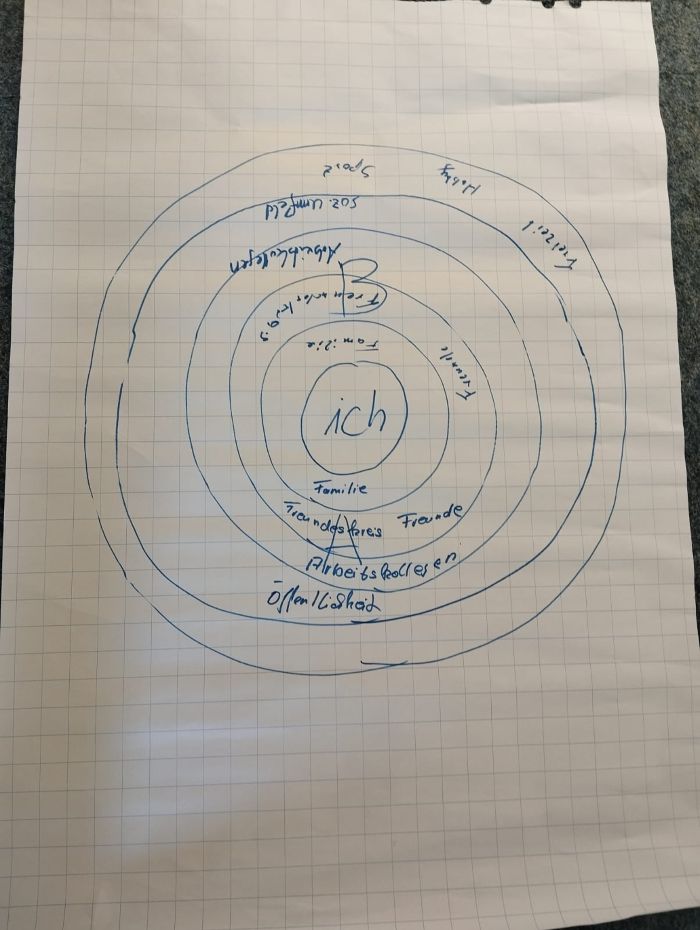 Sport
Hobby
Freizeit
soz. Umfeld
Arbeitskollegen
Freundeskreis
Freunde
Familie
ich
Familie
Freundeskreis
Freunde
Arbeitskollegen
Öffentlichkeit